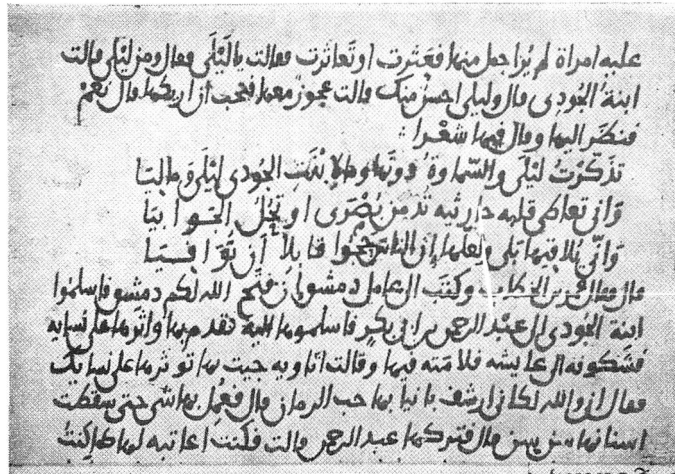 عليه امراة لم يُر اجمل منها فعَثرت او تَعاثرت فقالت يا لَيْلَى فقال ومن ليْلى قالت
ابنة الجُودى قال وليلى احسن منك قالت عجوز معها فتحب ان اريكها قال نعَمْ
فنظر اليها وقال فيها شعْرا
تذكّرْتُ ليْلَى والسّماوةُ دونَها وما لابْنَةِ الجُودى ليْلَى وماليَا
وَانى تعاطى قلبه حارثيه تُدمن بُصْرَى او تحُلّ الجَوابيَا
وَانّى يُلاقيها بَلى ولعلها إن الناس حجّوا قابلاً أن تُوَافيَا
قال فقال عمر بن الخطاب وكتب الى عامل دمشق إن فتح الله لكم دمشق فاسلموا
ابنة الجُودى الى عبْد الرحمن بن ابى بكر فاسلموها اليه تقدم بها واثرها على نسايه
فشكونه الى عايشه فلامَته فيها وقالت اتاويه جيت بها توثرها على نسايك
فقال انى والله لكانى ارشف بانيابها حب الرمان قال فعُمل بها شى حتى سقطت
اسنانها فتركها عبد الرحمن قالت فكنت اعاتبه لها كما كنت